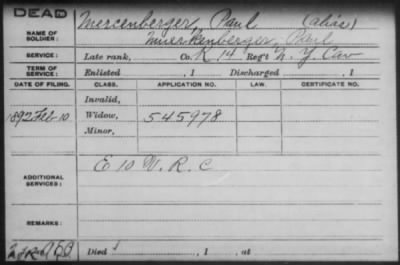 DEAD
NAME OF SOLDIER: Mercenberger, Paul (alias)
Muerkenberger, Paul
SERVICE: Late rank, Co. K 14 Reg't N. Y. Cav
TERM OF SERVICE: Enlisted , 1 Discharged , 1
DATE OF FILING. CLASS. APPLICATION NO. LAW. CERTIFICATE NO.
Invalid,
1892 Feb 10 Widow, 545978
Minor,
ADDITIONAL SERVICES: E 10 V. R. C
REMARKS:
Died , 1 , at